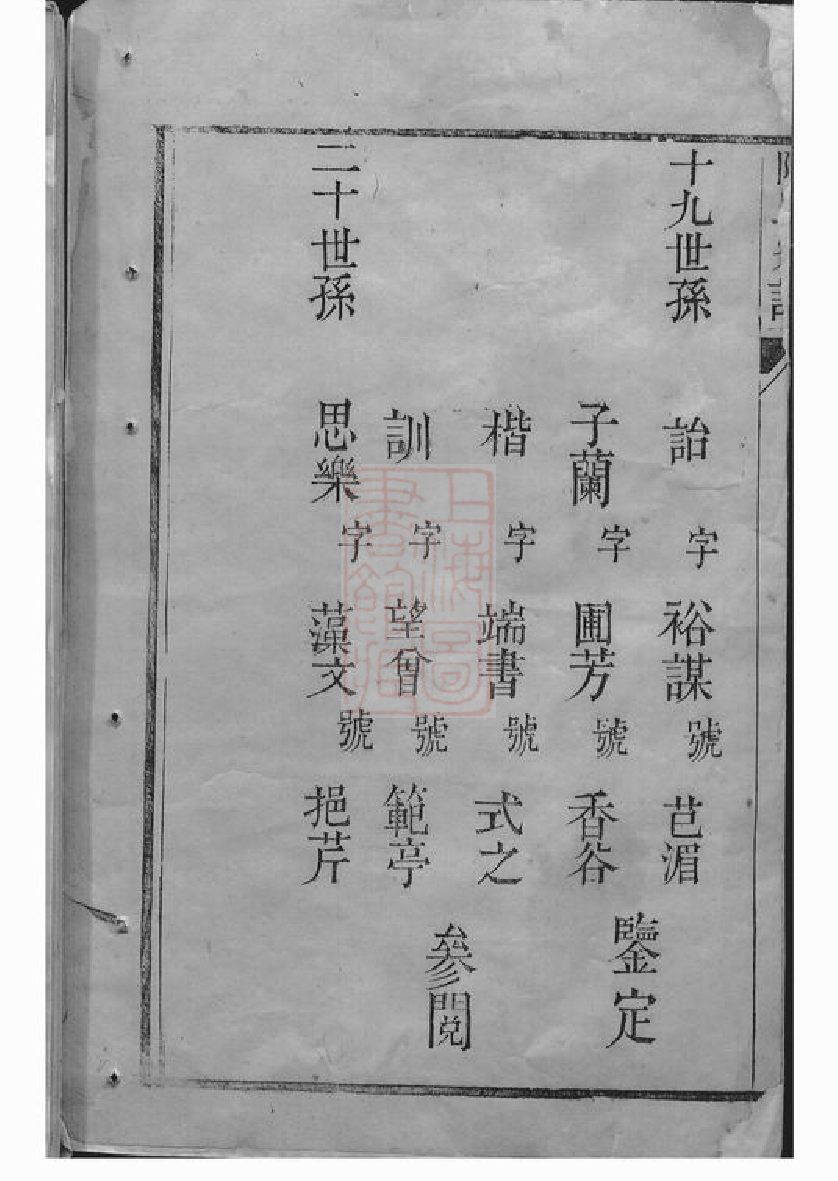 十九世孫 詒 字 裕謀 號 芑湄
子蘭 字 圃芳 號 香谷
鑒定
楷 字 端書 號 式之
訓 字 望曾 號 範亭
參閱
二十世孫 思樂 字 藻文 號 挹芹
上海圖
書館藏